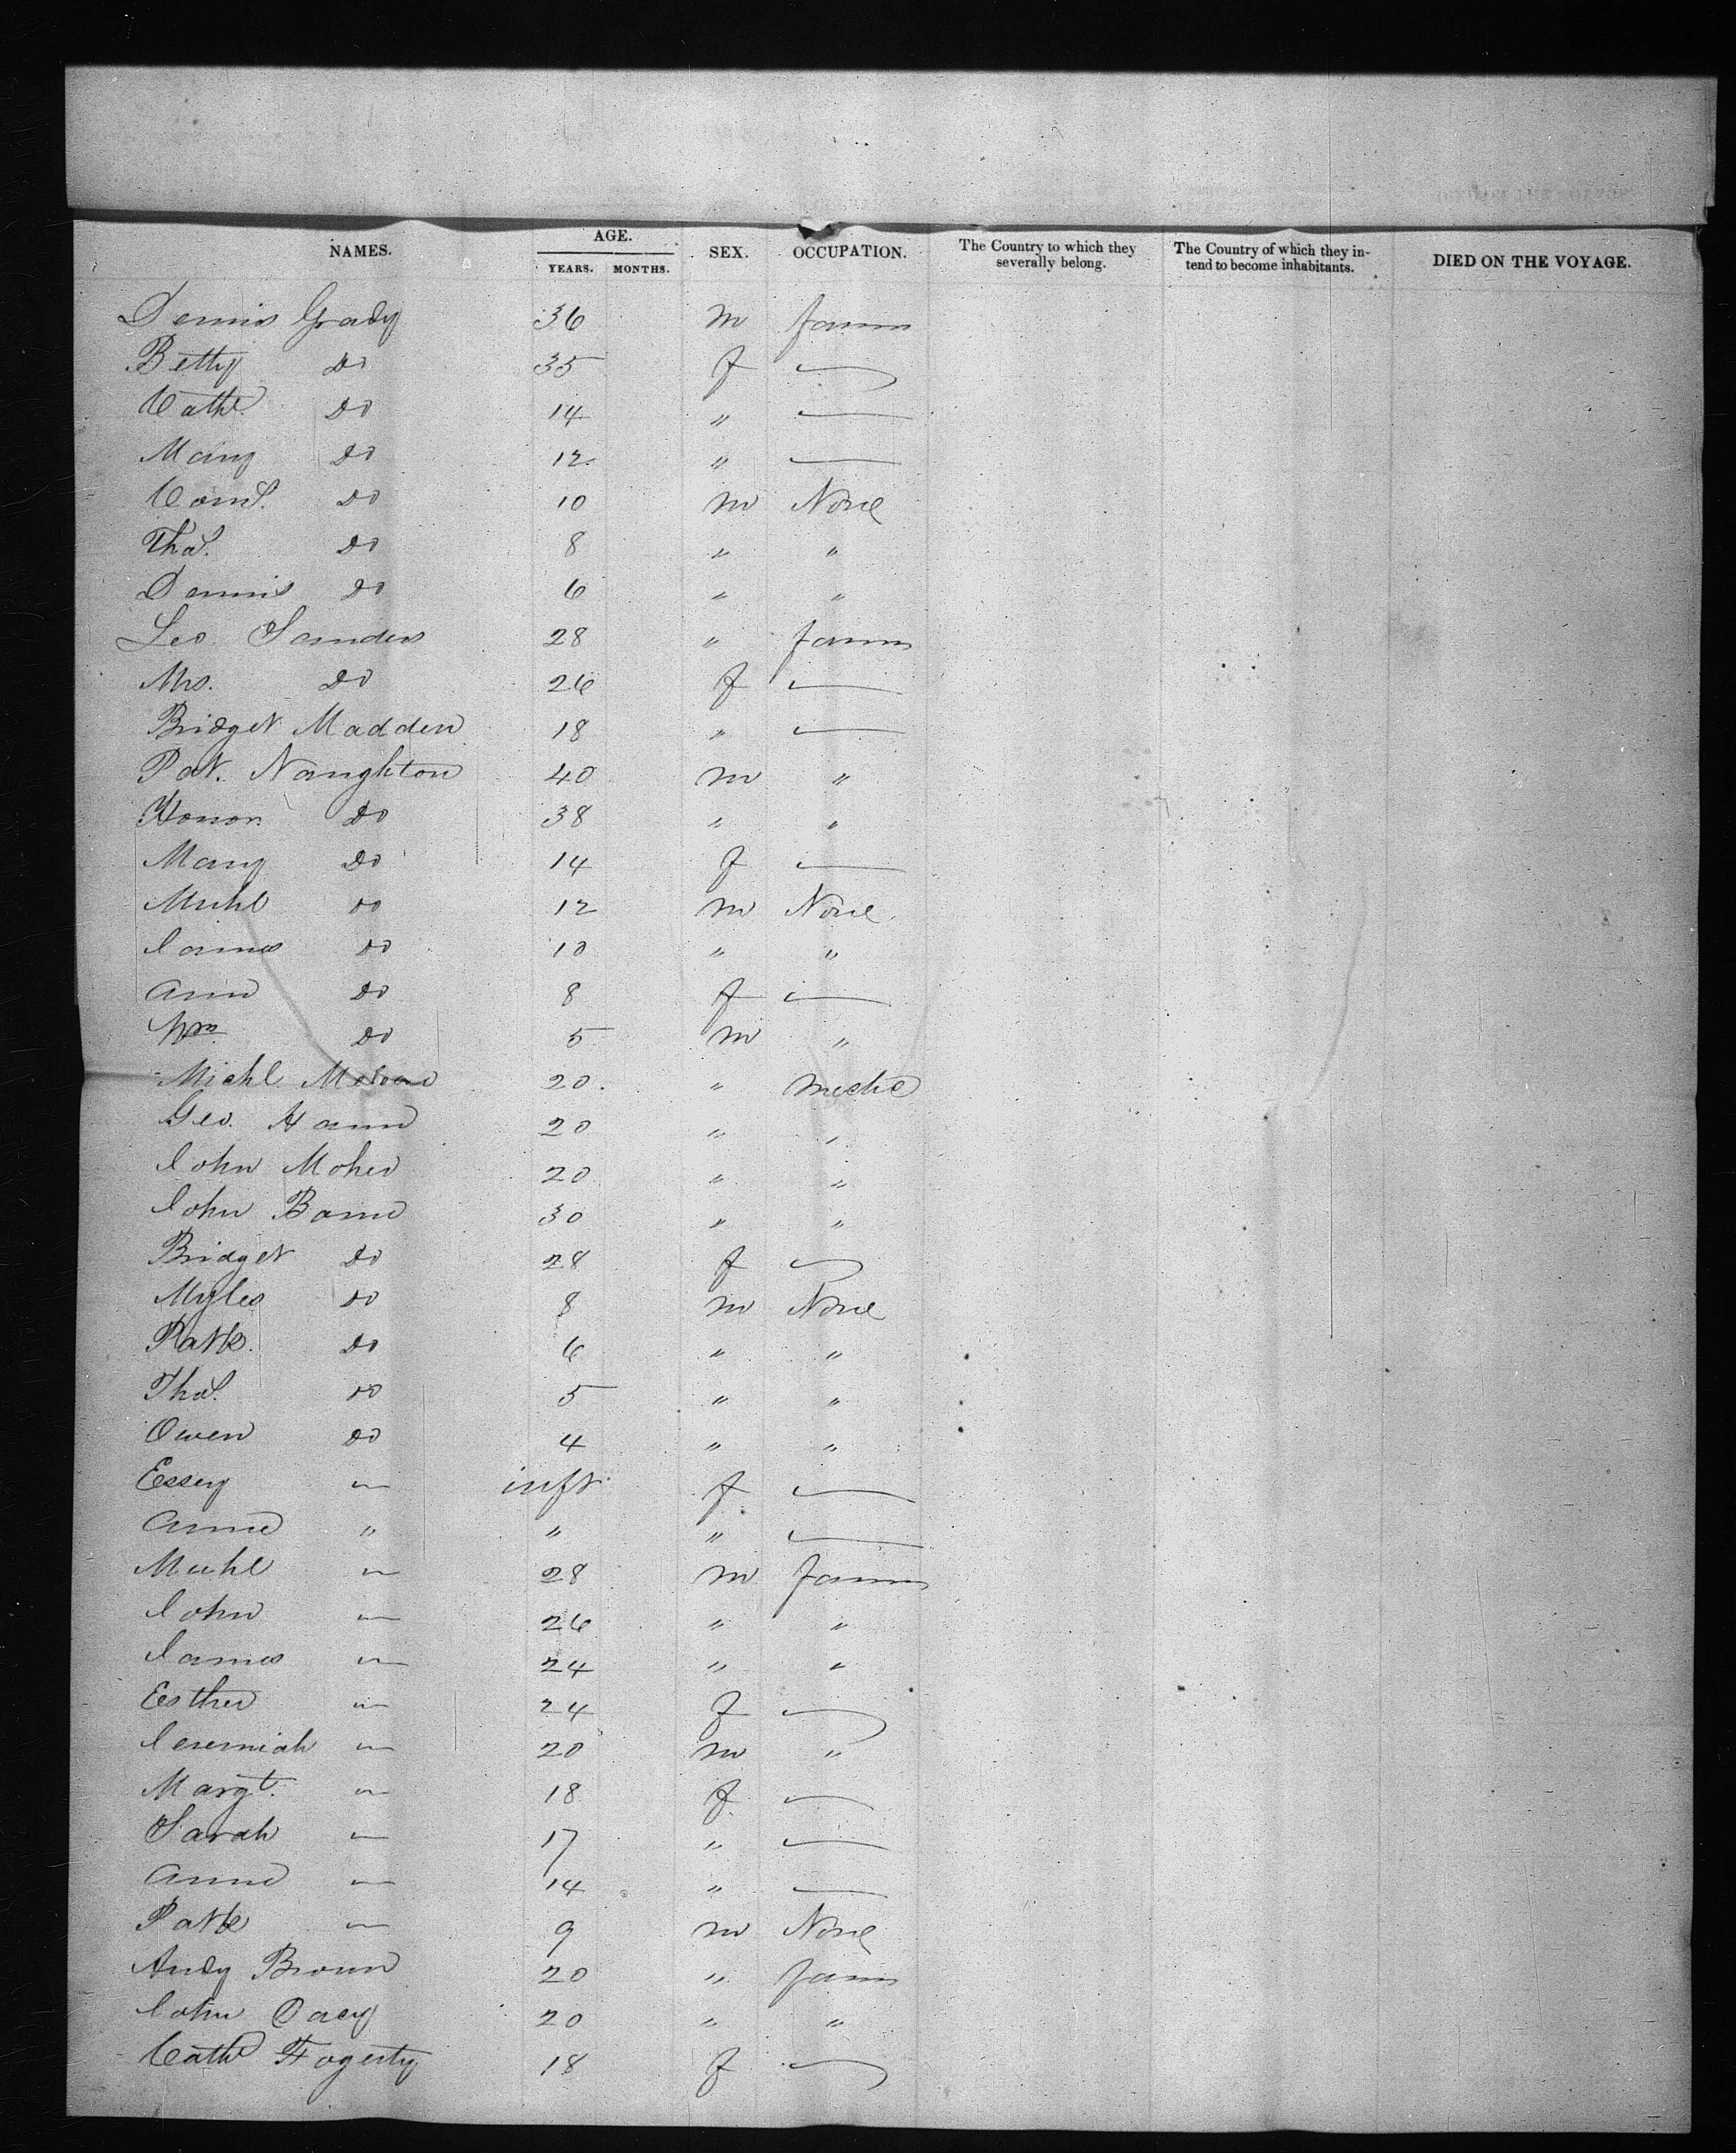 NAMES. AGE. YEARS. MONTHS. SEX. OCCUPATION. The Country to which they severally belong. The Country of which they intend to become inhabitants. DIED ON THE VOYAGE.
Dennis Grady 36 m farm
Betty Do 35 f —
Cath. Do 14 " —
Mary Do 12 " —
Corns. Do 10 m None
Thos. Do 8 " "
Dennis Do 6 " "
Leo Sanders 28 " farm
Mrs. Do 26 f —
Bridget Madden 18 " —
Pat. Naughton 40 m "
Honor Do 38 " "
Mary Do 14 f —
Michl Do 12 m None
James Do 10 " "
Ann Do 8 f —
Wm. Do 5 m "
Michl 20 " mechc
Geo. Hann 20 " "
John Moher 20 " "
John Bann 30 " "
Bridget Do 28 f —
Myles Do 8 m None
Patk. Do 6 " "
Thos. Do 5 " "
Owen Do 4 " "
Essey " inft f —
Anne " " " —
Michl " 28 m farm
John " 26 " "
James " 24 " "
Esther " 24 f —
Jeremiah " 20 m "
Margt. " 18 f —
Sarah " 17 " —
Anne " 14 " —
Patk " 9 m None
Andy Brown 20 " farm
John Cacy 20 " "
Cath Fogerty 18 f —